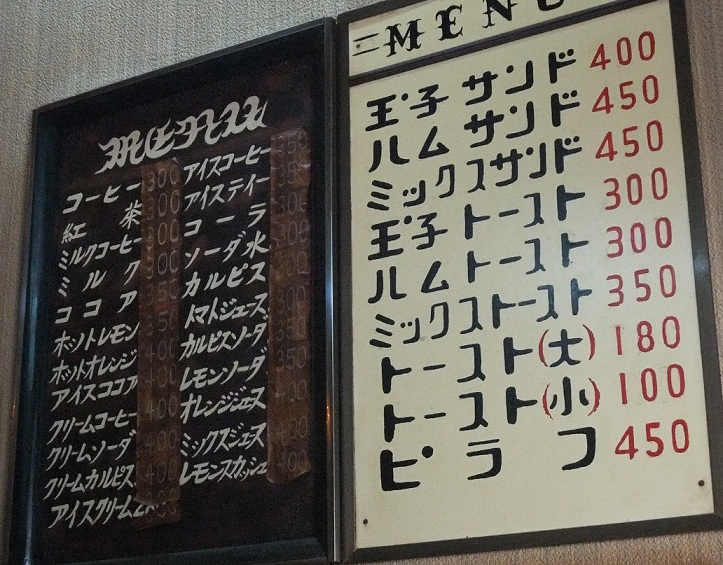 MENU
コーヒー 300
紅茶 300
ミルクコーヒー 300
ミルク 300
ココア 350
ホットレモン 350
ホットオレンジ 400
アイスココア
クリームコーヒー 400
クリームソーダ 400
クリームカルピス 400
アイスクリーム
アイスコーヒー 350
アイスティー 350
コーラ 300
ソーダ水 300
カルピス
トマトジュース 300
カルピスソーダ 350
レモンソーダ 350
オレンジジュース 400
ミックスジュース 400
レモンスカッシュ 400
MENU
玉子サンド 400
ハムサンド 450
ミックスサンド 450
玉子トースト 300
ハムトースト 300
ミックストースト 350
トースト(大) 180
トースト(小) 100
ピラフ 450